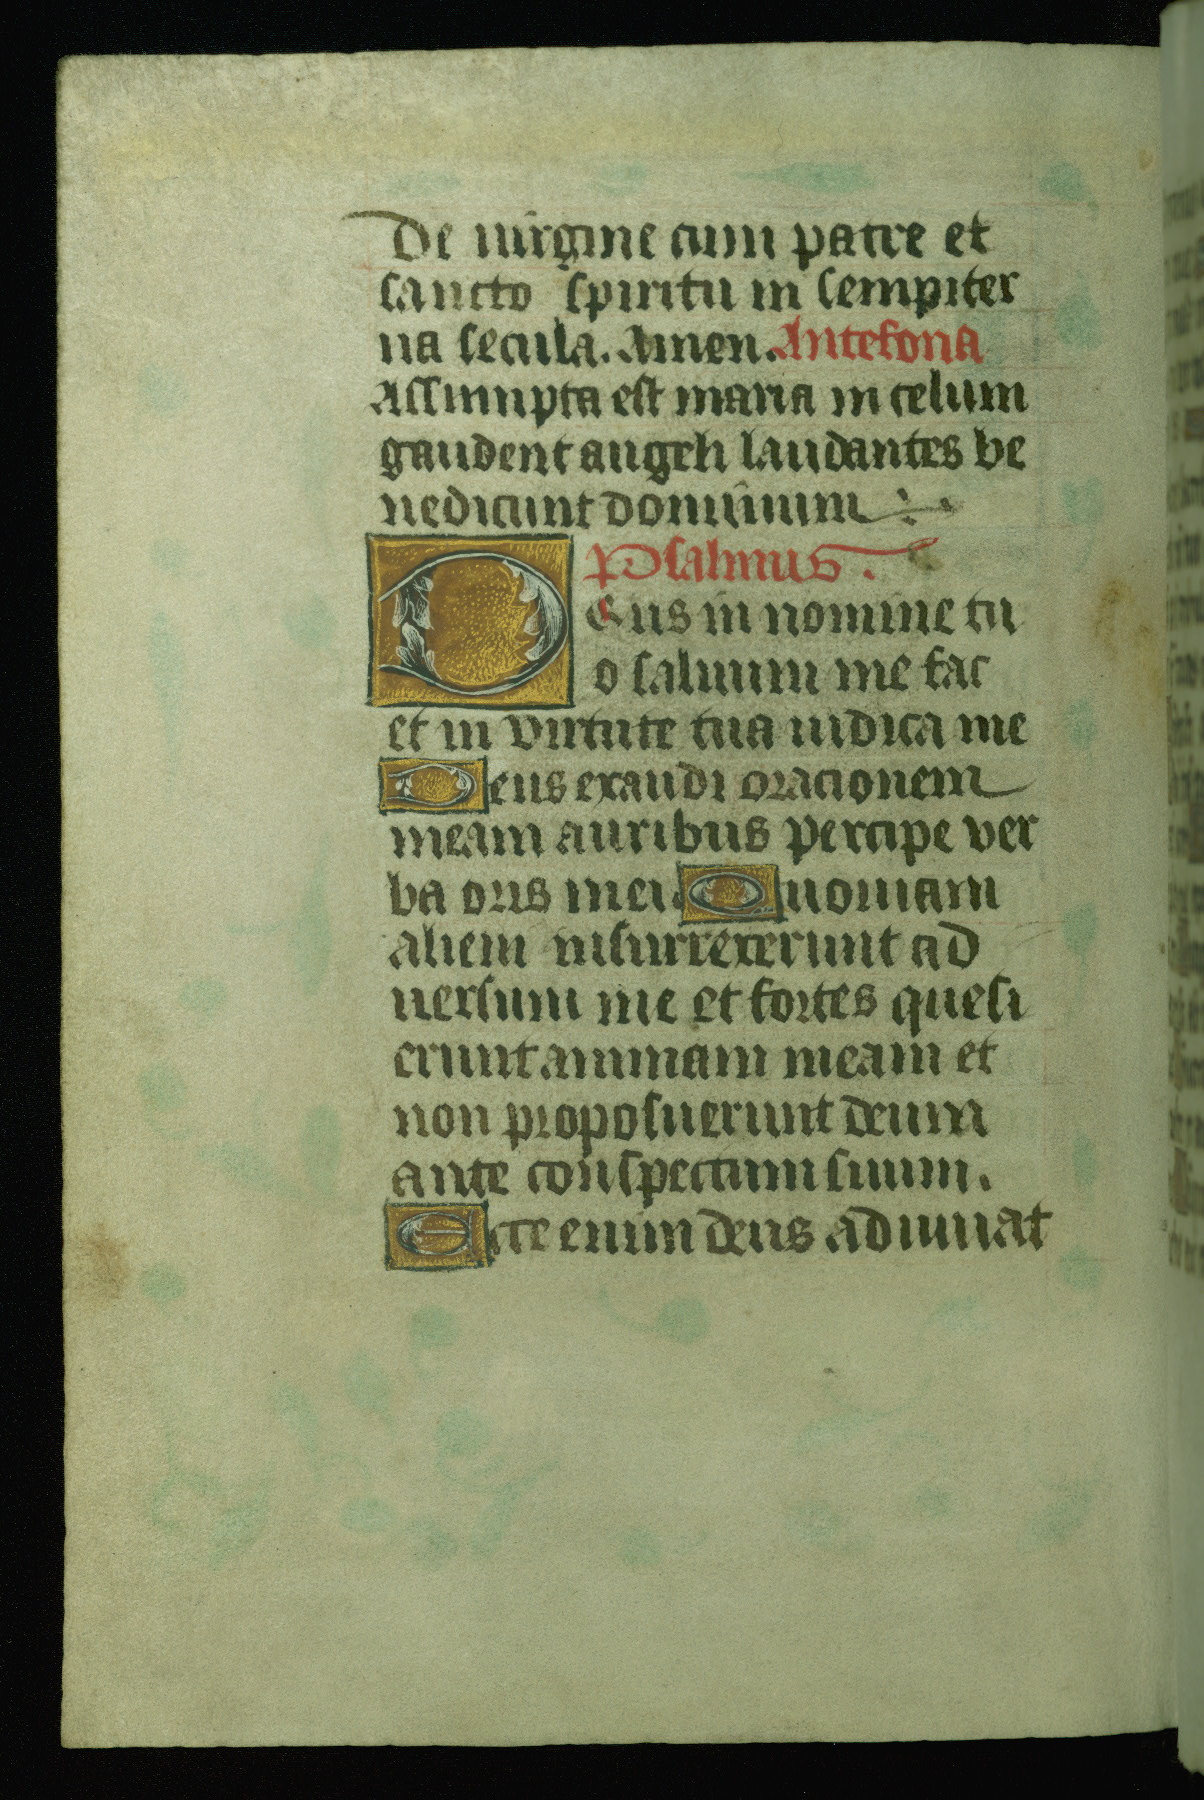 De uirgine cum patre et
sancto spiritu in sempiter
na secula. Amen. Antefona
Assumpta est maria in celum
gaudent angeli laudantes be
nedicunt dominum
Psalmus.
Deus in nomine tu
o saluum me fac
et in virtute tua iudica me
Deus exaudi oracionem
meam auribus percipe ver
ba oris mei. Quoniam
alieni insurrexerunt ad
uersum me et fortes quesi
erunt animam meam et
non proposuerunt deum
ante conspectum suum.
Ecce enim deus adiuuat